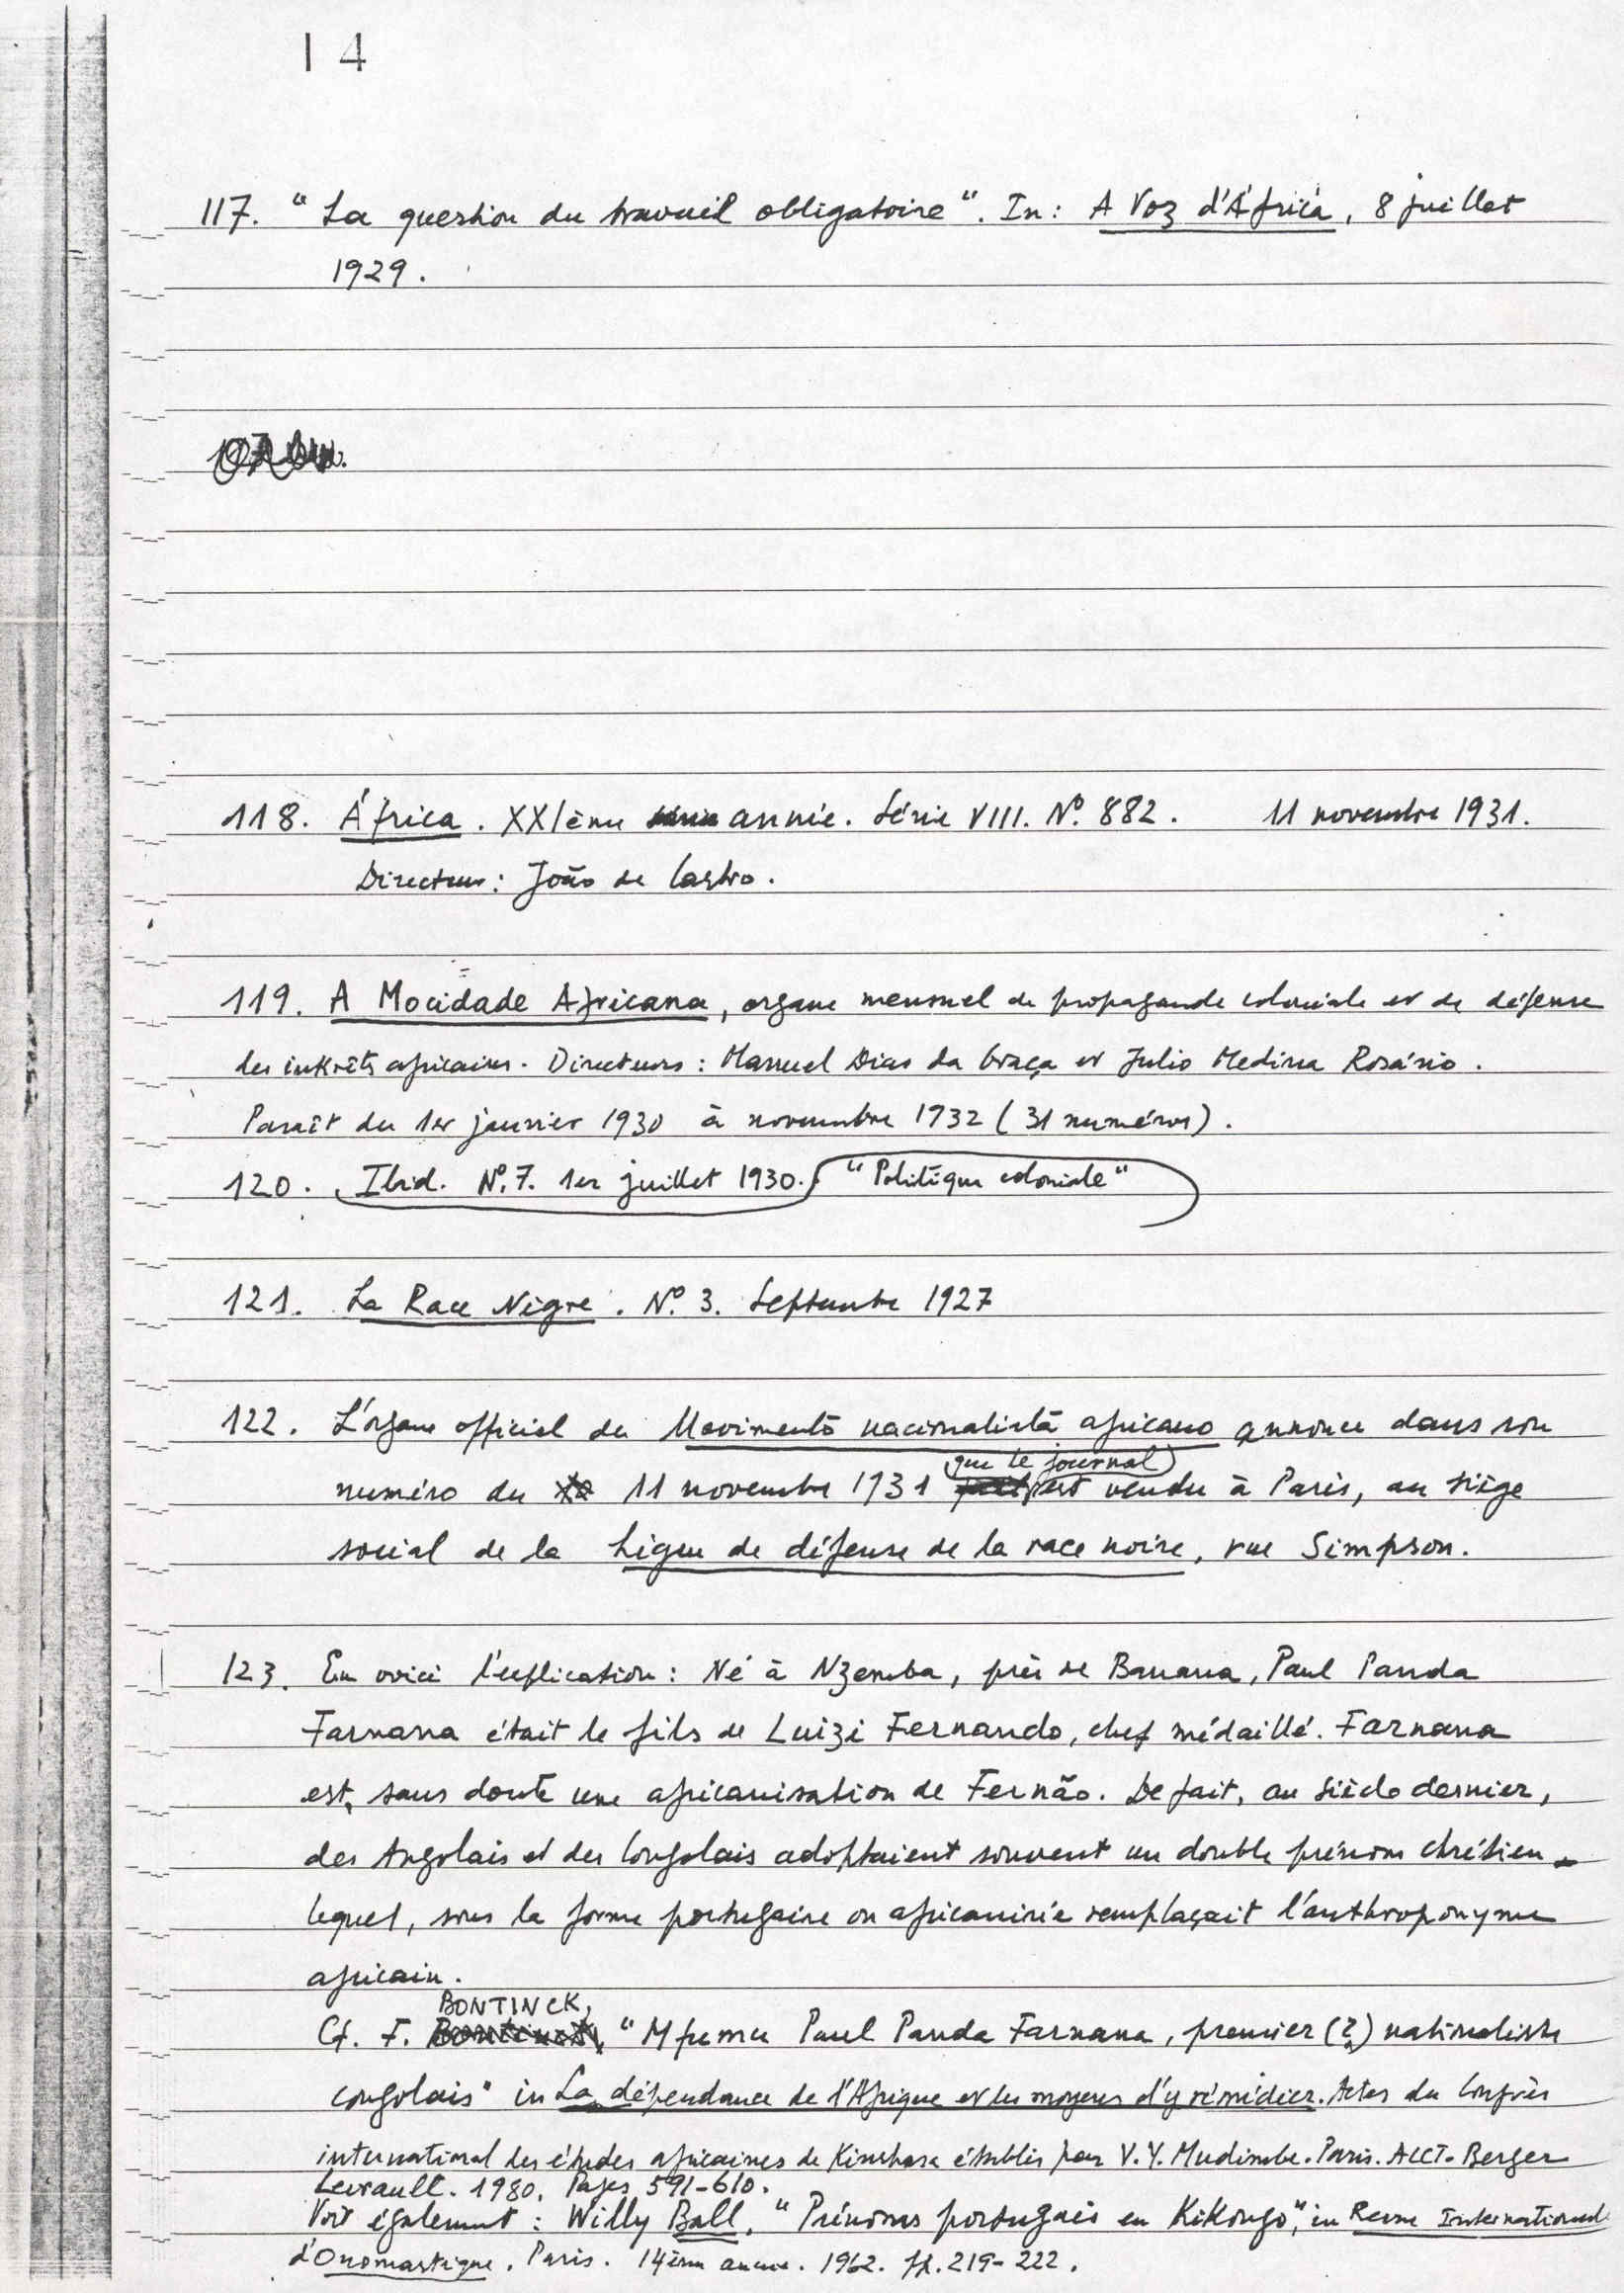 14
117. "La question du travail obligatoire". In: A Voz d'África, 8 juillet
1929.
118. África. XXIème année. Série VIII. Nº 882. 11 novembre 1931.
Directeur: João de Castro.
119. A Mocidade Africana, organe mensuel de propagande coloniale et de défense
des intérêts africains. Directeurs: Manuel Dias da Graça et Julio Medina Rosário.
Paraît du 1er janvier 1930 à novembre 1932 (31 numéros).
120. Ibid. Nº 7. 1er juillet 1930. "Politique coloniale"
121. La Race Nègre. Nº 3. Septembre 1927
122. L'organe officiel du Movimento nacionalista africano annonce dans son
que le journal
numéro du 11 novembre 1931 est vendu à Paris, au siège
social de la Ligue de défense de la race noire, rue Simpson.
123. En voici l'explication: Né à Nzemba, près de Banana, Paul Panda
Farnana était le fils de Luizi Fernando, chef médaillé. Farnana
est, sans doute une africanisation de Fernão. De fait, au siècle dernier,
des Angolais et des Congolais adoptaient souvent un double prénom chrétien
lequel, sous la forme portugaise ou africanisée remplaçait l'anthroponyme
africain.
BONTINCK,
Cf. F. "Mfumu Paul Panda Farnana, premier (?) nationaliste
congolais" in La dépendance de l'Afrique et les moyens d'y rémédier. Actes du Congrès
international des études africaines de Kinshasa établis par V. Y. Mudimbe. Paris. ACCT. Berger
Levrault. 1980. Pages 591-610.
Voir également: Willy Ball, "Prénoms portugais en Kikongo", in Revue Internationale
d'Onomastique. Paris. 14ème année. 1962. pp. 219-222.